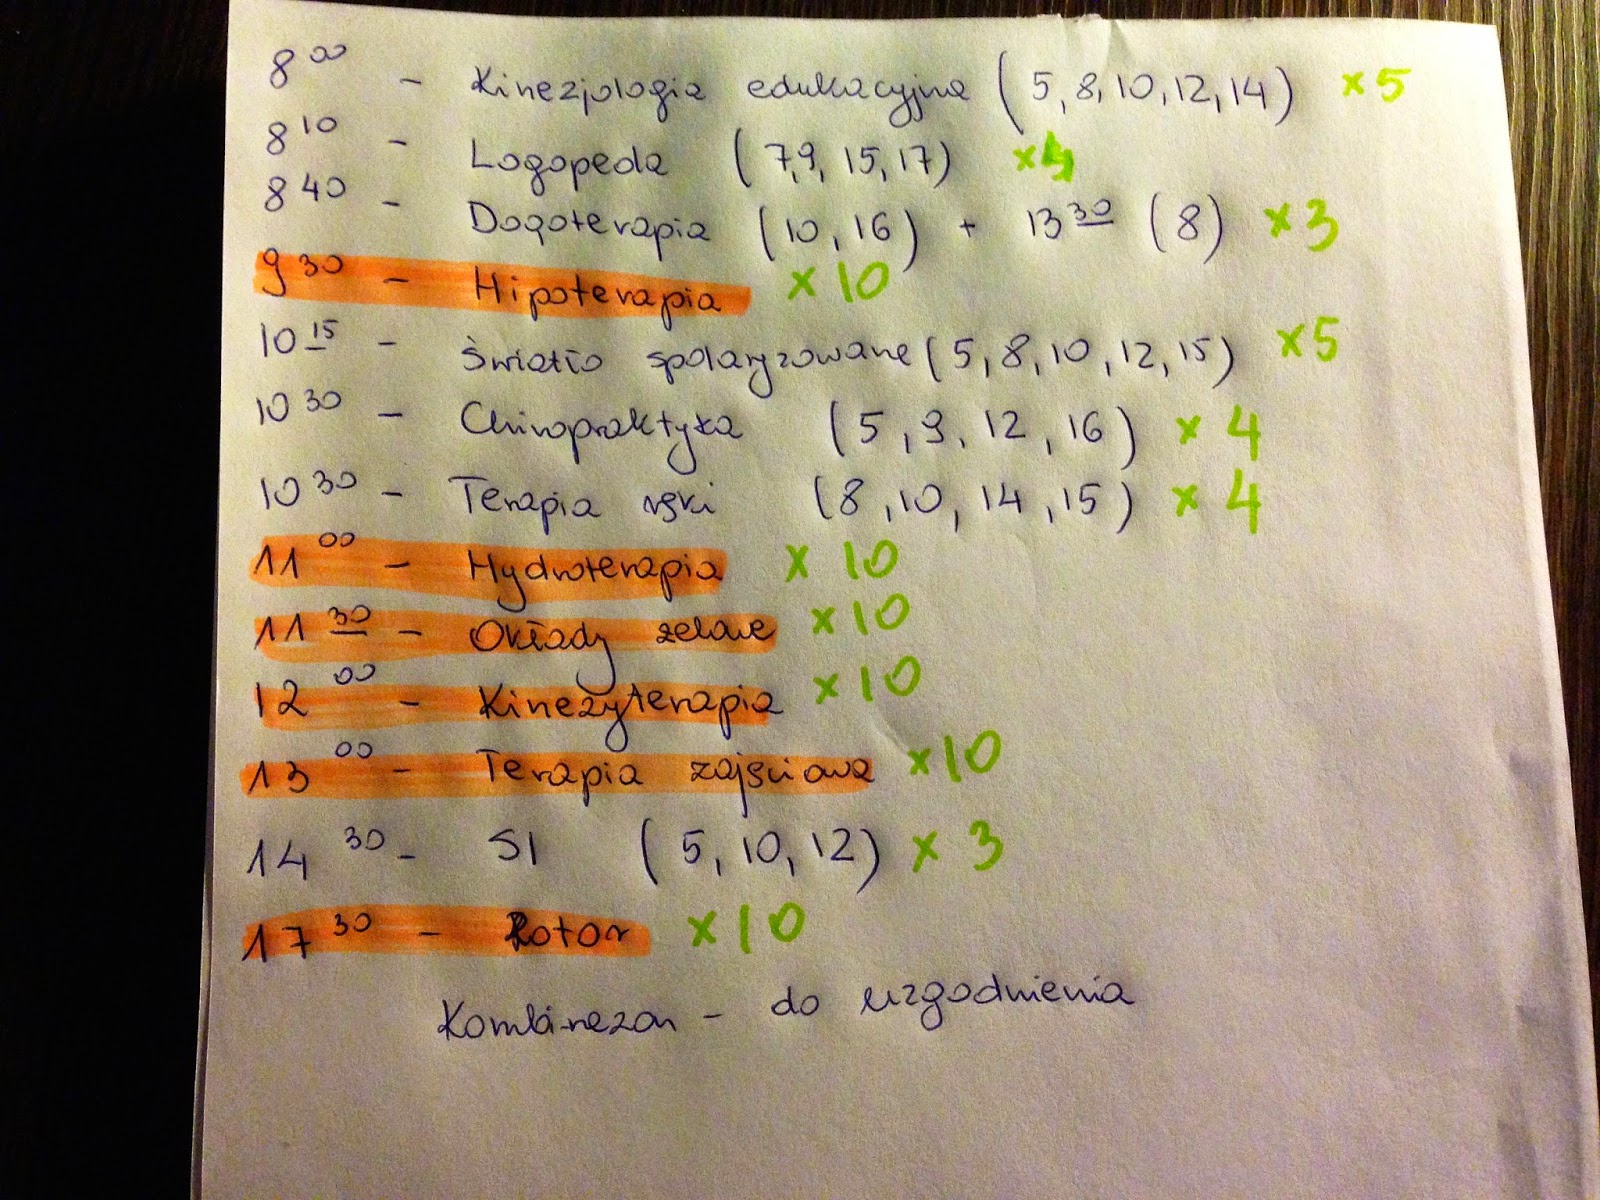 8 00 - Kinezjologia edukacyjna (5, 8, 10, 12, 14) x5
8 10 - Logopeda (7, 9, 15, 17) x4
8 40 - Dogoterapia (10, 16) + 13 30 (8) x3
9 30 - Hipoterapia x10
10 15 - Światło spolaryzowane (5, 8, 10, 12, 15) x5
10 30 - Chiropraktyka (5, 9, 12, 16) x 4
10 30 - Terapia ręki (8, 10, 14, 15) x 4
11 00 - Hydroterapia x 10
11 30 - Okłady żelowe x10
12 00 - Kinezyterapia x10
13 00 - Terapia zajęciowa x10
14 30 - SI (5, 10, 12) x 3
17 30 - Rotor x10
Kombinezon - do uzgodnienia